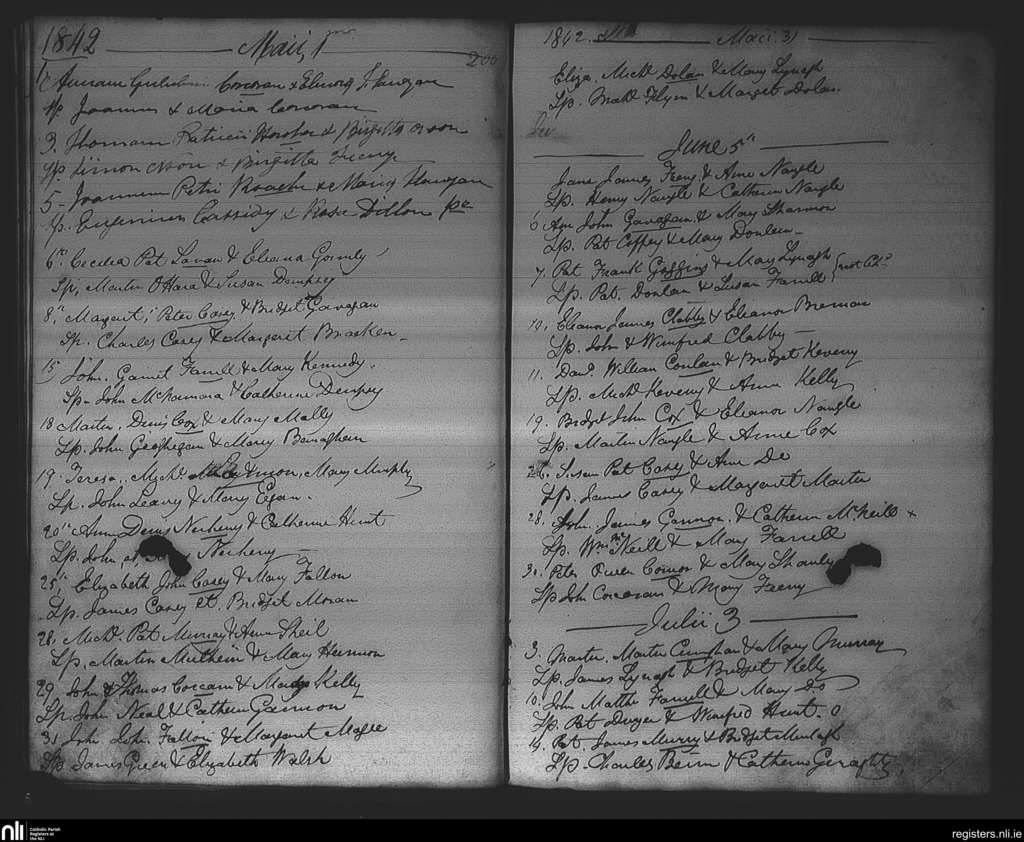 1842 Maii, 1mo
200
Annam Corcoran & Hanegan
Sp. Joannes & Maria Corcoran
3. Thomam Patricii & Birgitta
Sp. Simon & Birgitta Feeny
5 - Joannem Petri Roache & Maria Hanegan
Sp. Eugenius Cassidy & Rose Dillon
6th Cecelia Pat Lavan & Eleana Gormly
Sp. Martin O'Hara & Susan Dempsey
8th Magaret, Peter Casey & Bridget Gavagan
Sp. Charles Casey & Margaret Bracken
15 John. Garret Farrell & Mary Kennedy.
Sp. John McNamara & Catherine Dempsey
18 Martin. Denis Cox & Mary Mally
Sp. John Geoghegan & Mary
19. Teresa. Mychl. Mary Murphy
Sp. John Leavy & Mary Egan.
20th Ann Denis Neeheny & Catherine Hunt
Sp. John et Neeheny
25th Elizabeth John Casey & Mary Fallon
Sp. James Casey et Bridget Moran
28. Michl. Pat Murray & Ann Sheil
Sp. Martin Mulhern & Mary
29 John Thomas & Kelly
Sp. John Neal & Cathern Gannon
31 John John. Fallon & Margaret Magee
Sp. James Green & Elizabeth Walsh
1842 Maii. 31
Eliza. Michl Dolan & Mary Lynagh
Sp. Matt Flynn & Margret Dolan
June 5th
Jane James Feeny & Anne Naugle
Sp. Henry Naugle & Catherine Naugle
6 Ann John Gavagan & Mary Shannon
Sp. Pat Coffey & Mary Donlan
7. Pat Frank Goggins & Mary Lynagh
Sp. Pat. Donlan & Susan Farrell
10. Eleanor James Clabby & Eleanor Brennan
Sp. John & Winifred Clabby
11. Danl. William Conlan & Bridget Keveny
Sp. Michl Keveny & Anne Kelly
19. Bridget John Cox & Eleanor Naugle
Sp. Martin Naugle & Anne Cox
26. Susan Pat Casey & Ann Do
Sp. James Casey & Margaret Martin
28. John. James Gannon. & Catherin McNeill x
Sp. Wm Neill & May Farrell
30. Peter Owen Connor & Mary Shanly
Sp John Corcoran & Mary Feeny
Julii 3
3. Martin. Martin & Mary Murray
Sp. James Lynagh & Bridget Kelly
10. John Matthw Farrell & Mary Do
Sp. Pat Dwyer & Winefred Hunt.
14. Pat. James Murry & Bridget
Sp. Charles Beirn & Catherine Geraghty
nli
Catholic Parish
Registers at
the NLI
registers.nli.ie